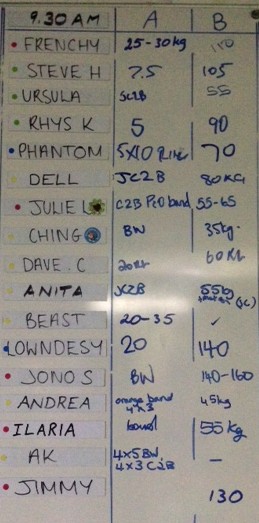 9.30 AM A B
FRENCHY 25-30kg 110
STEVE H 7.5 105
URSULA JC2B 55
RHYS K 5 90
PHANTOM 5X10 70
DELL JC2B 80KG
JULIE L C2B band 55-65
CHING BW 35kg.
DAVE.C 60
ANITA JC2B 55kg
BEAST 20-35 ✓
LOWNDESY 20 140
JONO S BW 140-160
ANDREA orange band 45kg
4x3
ILARIA band 55kg
AK 4x5 BW -
4x3 C2B
JIMMY 130